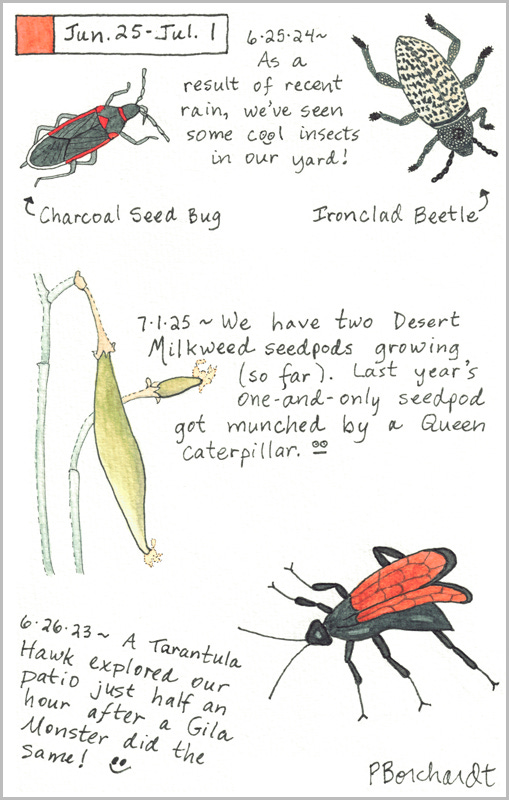 Jun. 25-Jul. 1
6·25·24~
As a
result of recent
rain, we've seen
some cool insects
in our yard!
Charcoal Seed Bug
Ironclad Beetle
7·1·25 ~ We have two Desert
Milkweed seedpods growing
(so far). Last year's
one-and-only seedpod
got munched by a Queen
caterpillar.
6·26·23~ A Tarantula
Hawk explored our
patio just half an
hour after a Gila
Monster did the
same!
PBorchardt